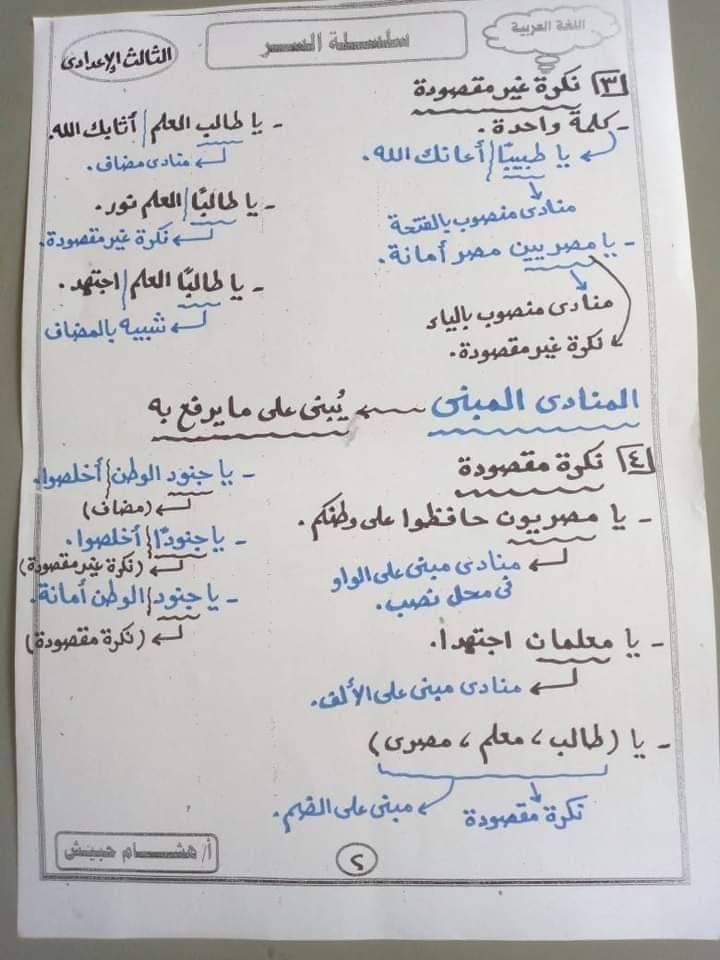 اللغة العربية
سلسلة السر
الثالث الإعدادى
٣ نكرة غير مقصودة
- كلمة واحدة.
يا طبيبًا / أعانك الله.
منادى منصوب بالفتحة
- يا مصريين مصر أمانة.
منادى منصوب بالياء
نكرة غير مقصودة.
- يا طالب العلم / أثابك الله.
منادى مضاف.
- يا طالبًا / العلم نور.
نكرة غير مقصودة.
- يا طالبًا العلم / اجتهد.
شبيه بالمضاف
المنادى المبنى ← يُبنى على ما يرفع به
٤ نكرة مقصودة
- يا مصريون حافظوا على وطنكم.
منادى مبنى على الواو
فى محل نصب.
- يا معلمان اجتهدا.
منادى مبنى على الألف.
- يا (طالب، معلم، مصرى)
نكرة مقصودة
مبنى على الضم.
- يا جنود الوطن / أخلصوا.
(مضاف)
- يا جنودًا / أخلصوا.
(نكرة غير مقصودة)
- يا جنود / الوطن أمانة.
(نكرة مقصودة)
أ/ هشام حبيش
٢